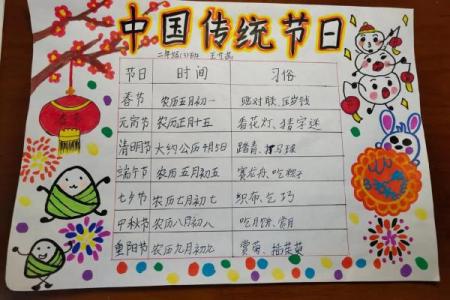 中国传统节日
二年级(3)班 王
节日 时间 习俗
春节 农历五月初一 贴对联、压岁钱
元宵节 农历正月十五 看花灯、猜字迷
清明节 大约公历4月5日 踏青、扫
端午节 农历五月初五 赛龙舟、吃粽子
七夕节 农历七月初七 织布、乞巧
中秋节 农历八月初八 吃月饼、赏月
重阳节 农历九月初九 赏菊、插茱萸